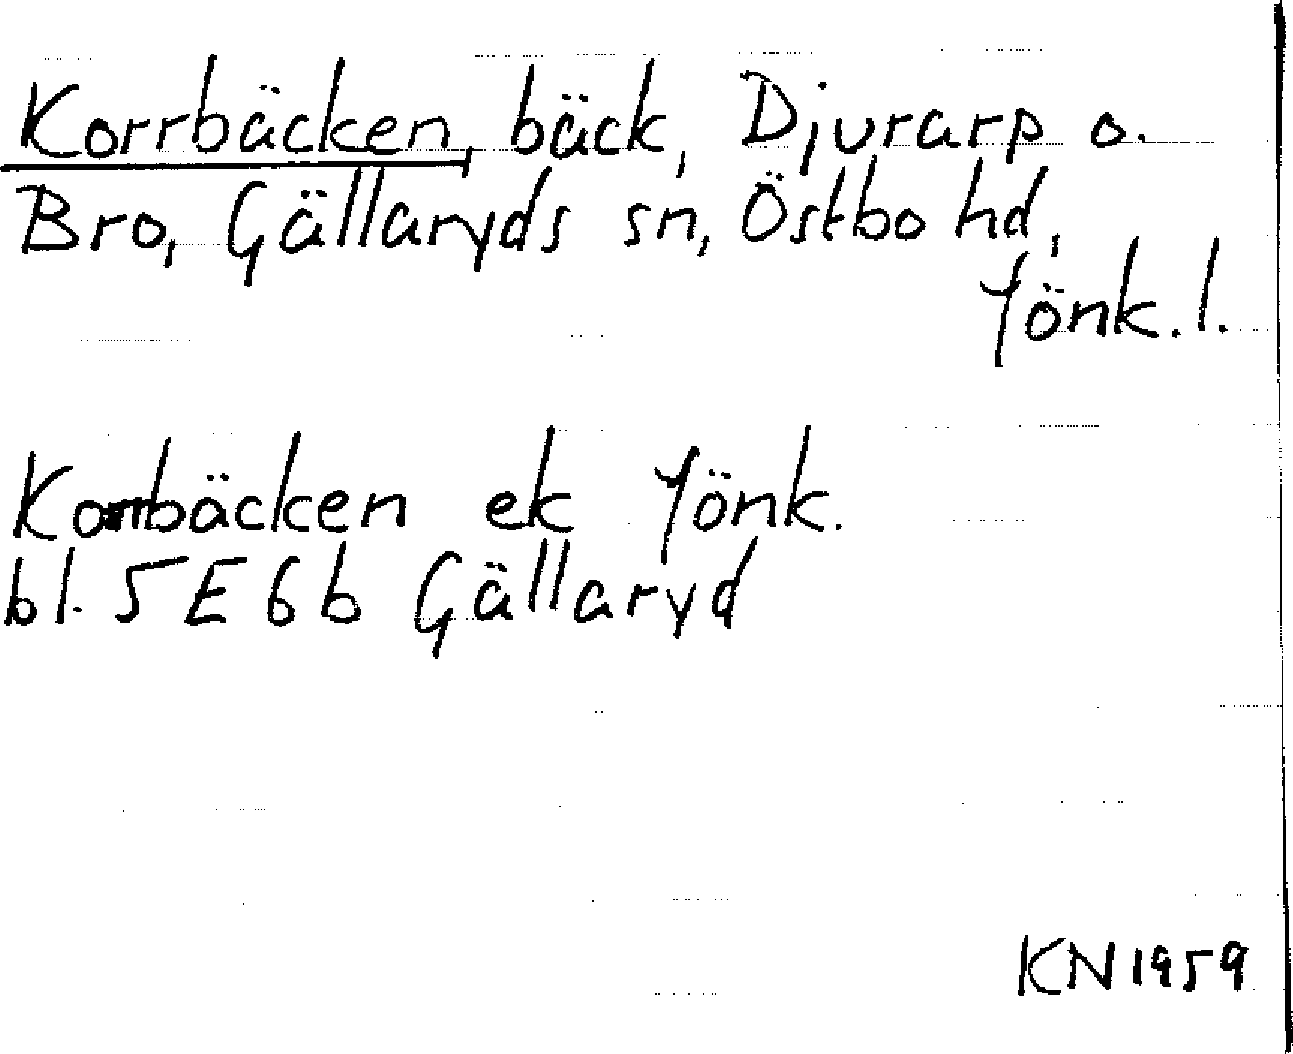 Korrbäcken, bäck, Djurarp o.
Bro, Gällaryds sn, Östbo hd,
Jönk. l.
Korrbäcken ek Jönk.
bl. 5E6b Gällaryd
KN 1959